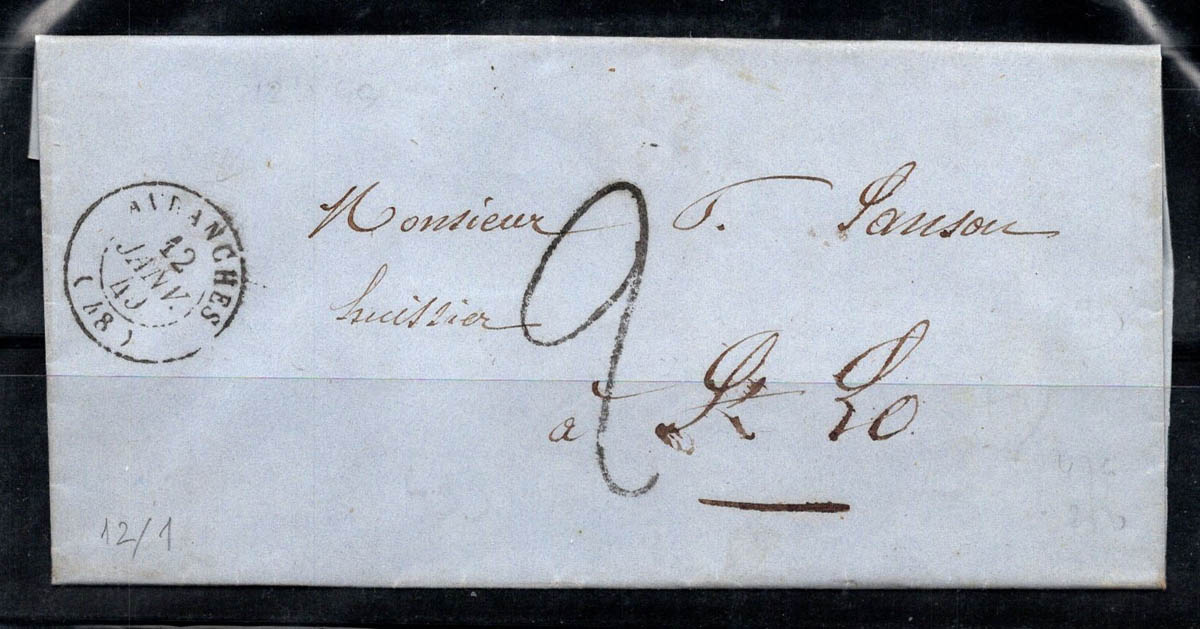 AVRANCHES
12
JANV.
49
(48)
Monsieur T. Sanson
huissier
2
à St Lo
12/1